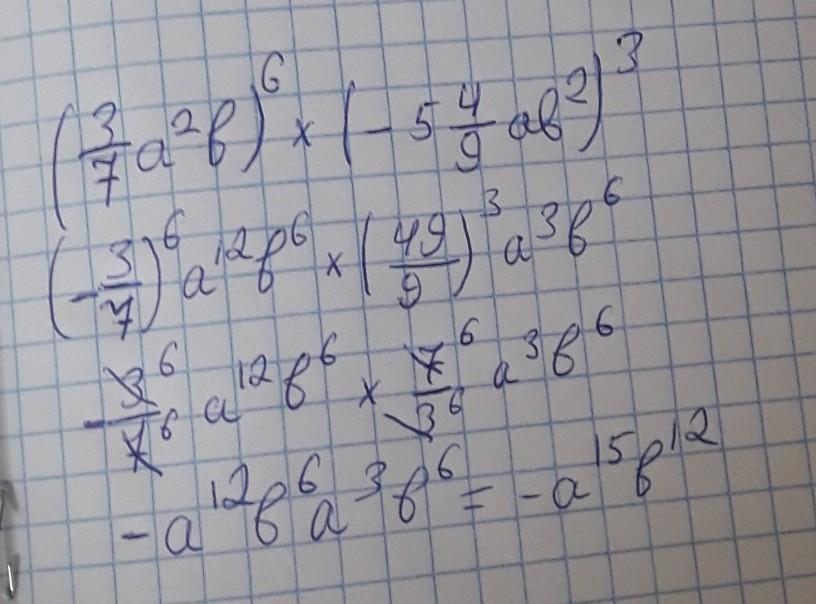 (3/7 a²b)⁶ × (-5 4/9 ab²)³
(-3/7)⁶ a¹²b⁶ × (49/9)³ a³b⁶
-3⁶/7⁶ a¹²b⁶ × 7⁶/3⁶ a³b⁶
-a¹²b⁶a³b⁶ = -a¹⁵b¹²